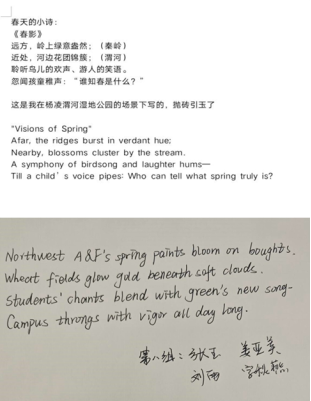 春天的小诗：
《春影》
远方，岭上绿意盎然；（秦岭）
近处，河边花团锦簇；（渭河）
聆听鸟儿的欢声、游人的笑语。
忽闻孩童稚声：“谁知春是什么？”
这是我在杨凌渭河湿地公园的场景下写的，抛砖引玉了
"Visions of Spring"
Afar, the ridges burst in verdant hue;
Nearby, blossoms cluster by the stream.
A symphony of birdsong and laughter hums—
Till a child’s voice pipes: Who can tell what spring truly is?
Northwest A&F's spring paints bloom on boughts.
Wheat fields glow gold beneath soft clouds.
Students' chants blend with green's new song-
Campus throngs with vigor all day long.
第八组：
刘雨